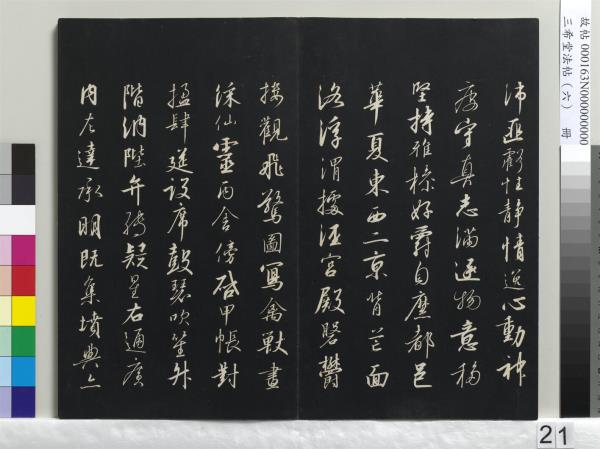 沛匪虧性靜情逸心動神
疲守真志滿逐物意移
堅持雅操好爵自縻都邑
華夏東西二京背芒面
洛浮渭據涇宮殿磐鬱
樓觀飛驚圖寫禽獸畫
綵仙靈丙舍傍啓甲帳對
楹肆筵設席鼓瑟吹笙升
階納陛弁轉疑星右通廣
內左達承明既集墳典亦
故帖 000163N000000000
三希堂法帖（六） 冊
21